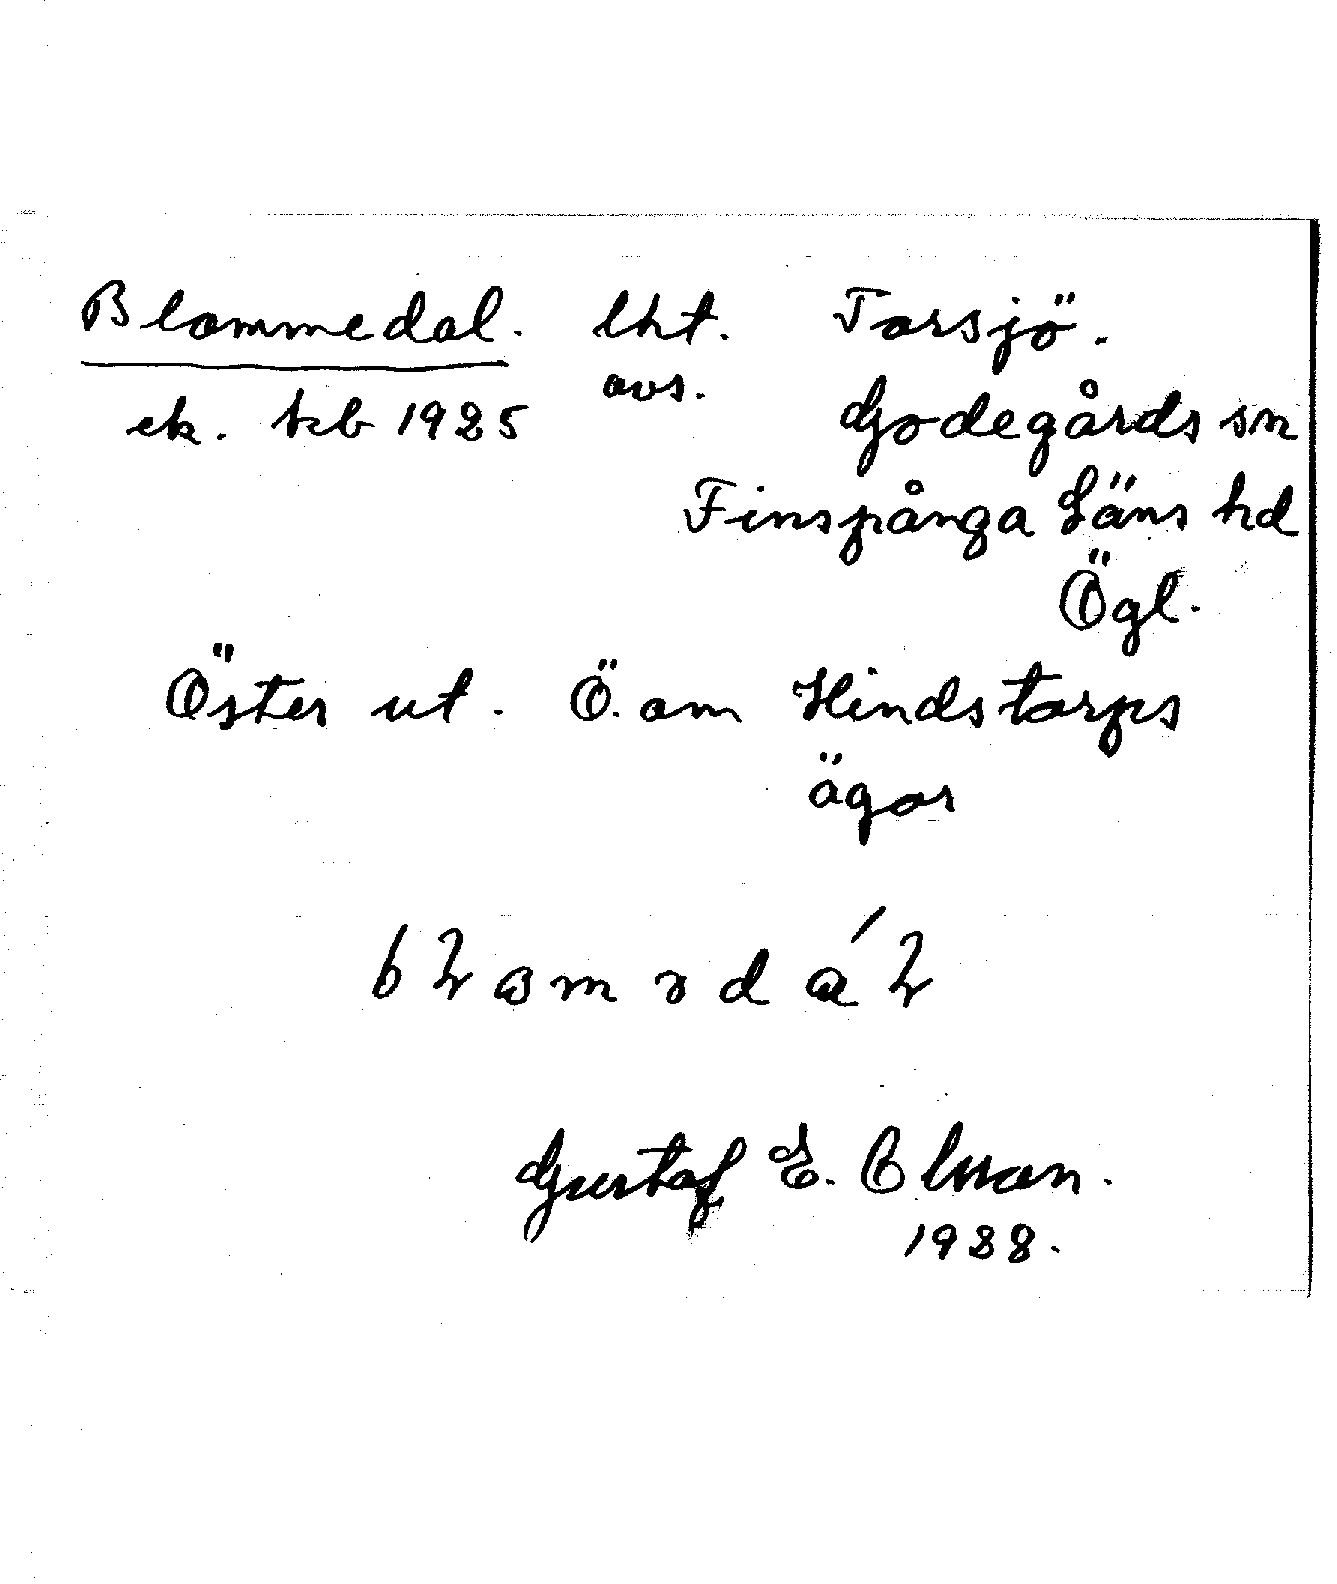 Blommedal. lht. Torsjö.
avs.
ek. kb 1925 Godegårds sn
Finspånga Läns hd
Ögl.
Öster ut. Ö. om Hindstorps
ägor
Gustaf E. Olsson.
1988.